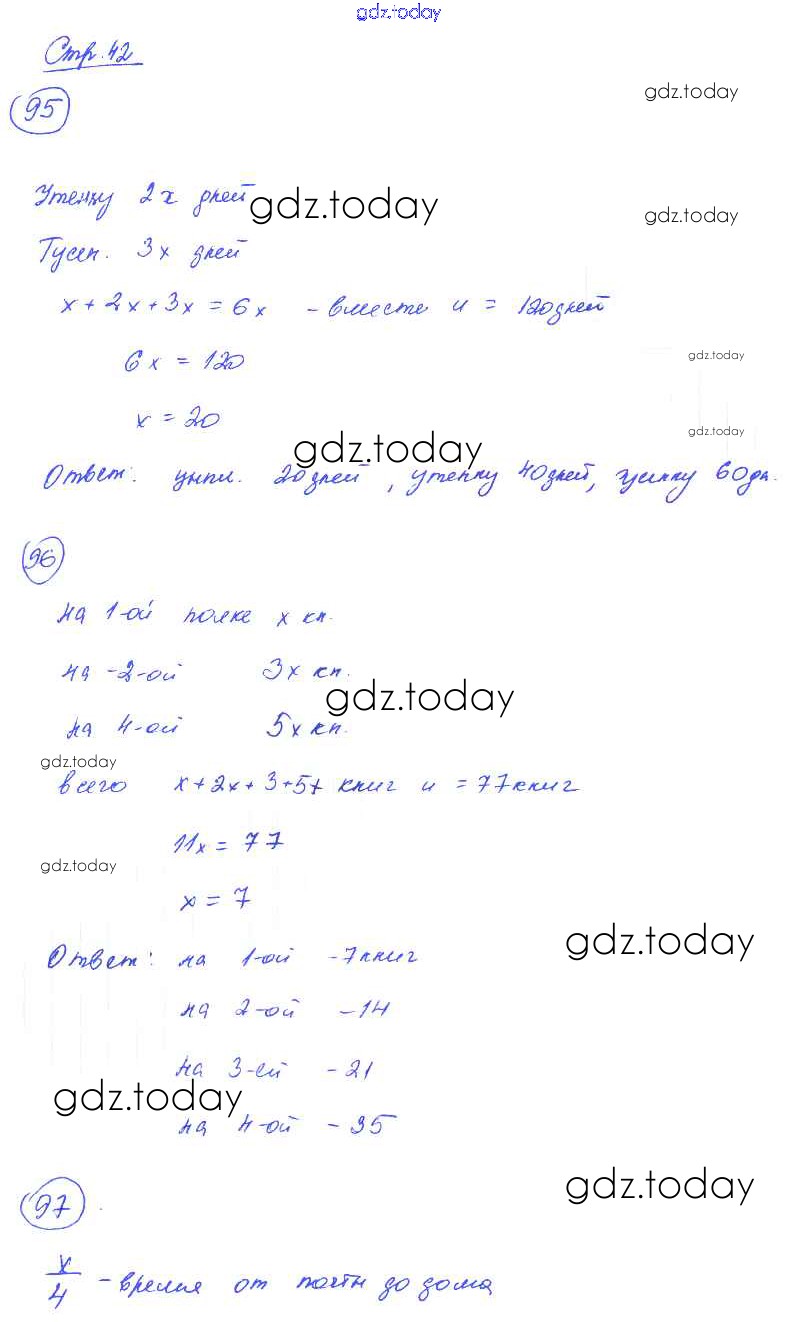 gdz.today
Стр. 42
gdz.today
95
Утенку 2х дней
gdz.today
gdz.today
Гусен. 3х дней
х + 2х + 3х = 6х - вместе и = 120 дней
gdz.today
6х = 120
х = 20
gdz.today
gdz.today
Ответ: цыпл. 20 дней, утенку 40 дней, гусенку 60 дн.
96
на 1-ой полке х кн.
на -2-ой 3х кн.
gdz.today
на 4-ой 5х кн.
gdz.today
всего х + 2х + 3 + 5+ книг и = 77 книг
11х = 77
gdz.today
х = 7
gdz.today
Ответ: на 1-ой - 7 книг
на 2-ой - 14
на 3-ей - 21
gdz.today
на 4-ой - 35
gdz.today
97
х/4 - время от почты до дома